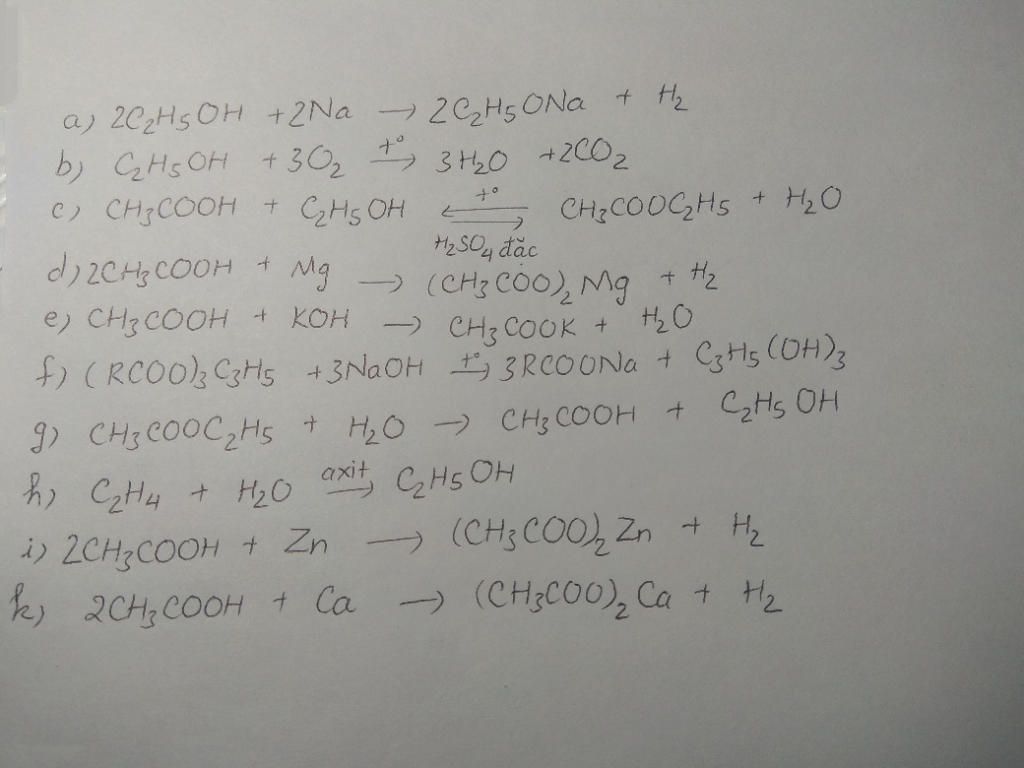 a) 2C₂H₅OH + 2Na → 2C₂H₅ONa + H₂
b) C₂H₅OH + 3O₂ →(t°) 3H₂O + 2CO₂
c) CH₃COOH + C₂H₅OH ⇌(t°, H₂SO₄ đặc) CH₃COOC₂H₅ + H₂O
d) 2CH₃COOH + Mg → (CH₃COO)₂Mg + H₂
e) CH₃COOH + KOH → CH₃COOK + H₂O
f) (RCOO)₃C₃H₅ + 3NaOH →(t°) 3RCOONa + C₃H₅(OH)₃
g) CH₃COOC₂H₅ + H₂O → CH₃COOH + C₂H₅OH
h) C₂H₄ + H₂O →(axit) C₂H₅OH
i) 2CH₃COOH + Zn → (CH₃COO)₂Zn + H₂
k) 2CH₃COOH + Ca → (CH₃COO)₂Ca + H₂